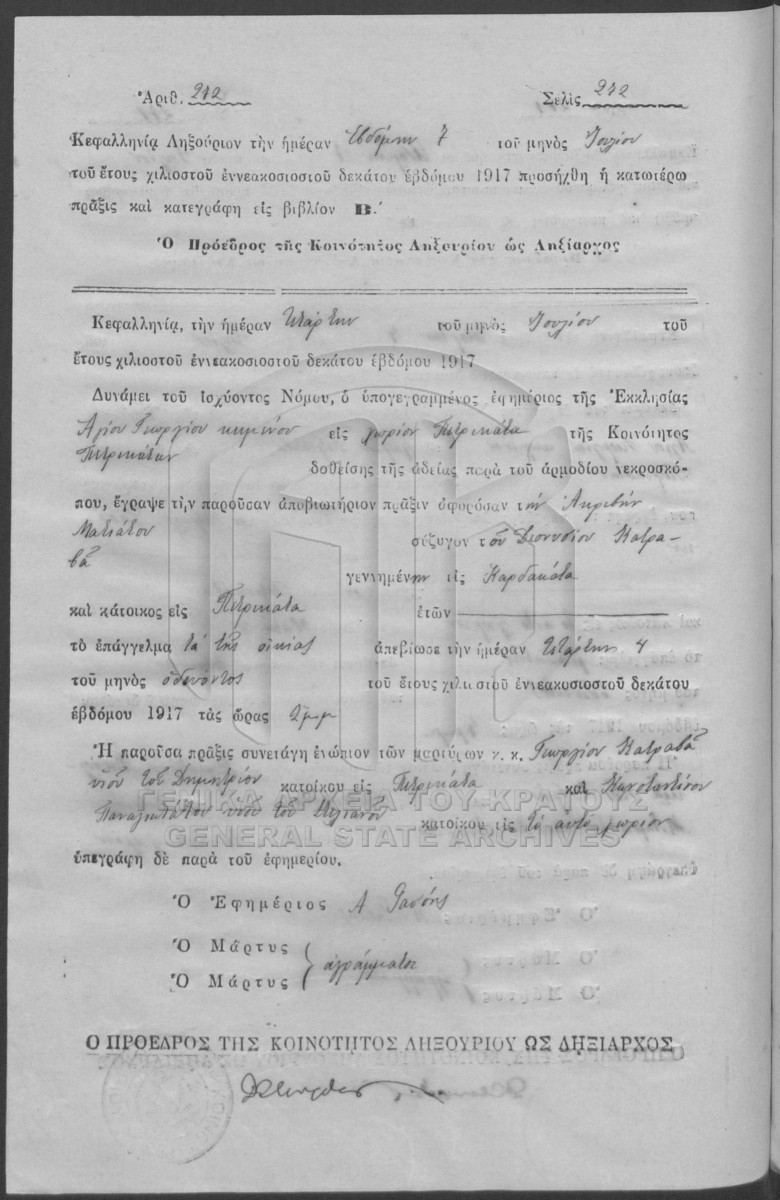 Ἀριθ. 212 Σελὶς 212
Κεφαλληνίᾳ Ληξούριον τὴν ἡμέραν Ἑβδόμην 7 τοῦ μηνὸς Ἰουλίου
τοῦ ἔτους χιλιοστοῦ ἐννεακοσιοστοῦ δεκάτου ἑβδόμου 1917 προσήχθη ἡ κατωτέρω
πρᾶξις καὶ κατεγράφη εἰς βιβλίον Β.΄
Ὁ Πρόεδρος τῆς Κοινότητος Ληξουρίου ὡς Ληξίαρχος
Κεφαλληνίᾳ, τὴν ἡμέραν τετάρτην τοῦ μηνὸς Ἰουλίου τοῦ
ἔτους χιλιοστοῦ ἐννεακοσιοστοῦ δεκάτου ἑβδόμου 1917
Δυνάμει τοῦ ἰσχύοντος Νόμου, ὁ ὑπογεγραμμένος ἐφημέριος τῆς Ἐκκλησίας
Ἁγίου Γεωργίου κειμένου εἰς χωρίον Πετρικάτα τῆς Κοινότητος
Πετρικάτων δοθείσης τῆς ἀδείας παρὰ τοῦ ἁρμοδίου νεκροσκό-
που, ἔγραψε τὴν παροῦσαν ἀποβιωτήριον πρᾶξιν ἀφορῶσαν τὴν Ἀκριβὴν
σύζυγον τοῦ Διονυσίου Κατρα-
βᾶ γεννημένην εἰς Καρδακάτα
καὶ κάτοικος εἰς Πετρικάτα ἐτῶν
τὸ ἐπάγγελμα τὰ τῆς οἰκίας ἀπεβίωσε τὴν ἡμέραν τετάρτην 4
τοῦ μηνὸς ὁδεύοντος τοῦ ἔτους χιλιοστοῦ ἐννεακοσιοστοῦ δεκάτου
ἑβδόμου 1917 τὰς ὥρας 2 μμ
Ἡ παροῦσα πρᾶξις συνετάγη ἐνώπιον τῶν μαρτύρων κ. κ. Γεωργίου Κατραβᾶ
υἱοῦ τοῦ Δημητρίου κατοίκου εἰς Πετρικάτα καὶ Κωνσταντίνου
υἱοῦ τοῦ κατοίκου εἰς τὸ αὐτὸ χωρίον
ΓΕΝΙΚΑ ΑΡΧΕΙΑ ΤΟΥ ΚΡΑΤΟΥΣ
GENERAL STATE ARCHIVES
ὑπεγράφη δὲ παρὰ τοῦ ἐφημερίου.
Ὁ Ἐφημέριος Α
Ὁ Μάρτυς
Ὁ Μάρτυς ἀγράμματοι
Ο ΠΡΟΕΔΡΟΣ ΤΗΣ ΚΟΙΝΟΤΗΤΟΣ ΛΗΞΟΥΡΙΟΥ ΩΣ ΛΗΞΙΑΡΧΟΣ